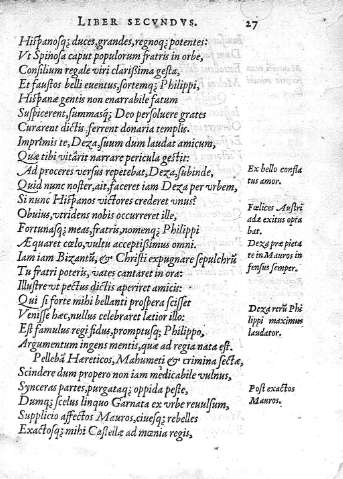 LIBER SECVNDVS. 27
Hiſpanosq; duces, grandes, regnoq; potentes:
Vt Spinoſa caput populorum fratris in orbe,
Conſilium regale viri clariſſima geſta,
Et fauſtos belli euentus, ſortemq; Philippi,
Hiſpanæ gentis non enarrabile fatum
Suſpicerent, ſummasq; Deo perſoluere grates
Curarent dictis ferrent donaria templis.
Imprimis te, Deza, ſuum dum laudat amicum,
Quæ tibi vitârit narrare pericula geſtit:
Ad proceres verſus repetebat, Deza, ſubinde,
Ex bello conſta
tus amor.
Quid nunc noſter, ait, faceret iam Deza per vrbem,
Si nunc Hiſpanos victores crederet vnus?
Obuius, vt ridens nobis occurreret ille,
Fœlices Auſtri
adæ exitus opta
bat.
Fortunasq; meas, fratris, nomenq; Philippi
Æquaret cœlo, vultu acceptiſsimus omni.
Deza præ pieta
te in Mauros in
fenſus ſemper.
Iam iam Bizantũ, & Chriſti expugnare ſepulchrũ
Tu fratri poteris, vates cantaret in ora:
Illuſtre vt pectus dictis aperiret amicis:
Qui ſi forte mihi bellanti proſpera ſciſſet
Veniſſe hæc, nullus celebraret lætior illo:
Deza rerũ Phi
lippi maximus
laudator.
Eſt famulus regi fidus, promptusq; Philippo,
Argumentum ingens mentis, quæ ad regia nata eſt.
Pellebã Hæreticos, Mahumeti & crimina ſectæ,
Scindere dum propero non iam medicabile vulnus,
Synceras partes, purgataq; oppida peſte,
Poſt exactos
Mauros.
Dumq; ſcelus linquo Garnata ex vrbe reuulſum,
Supplicio affectos Mauros, ciuesq; rebelles
Exactosq; mihi Caſtellæ ad mœnia regis,